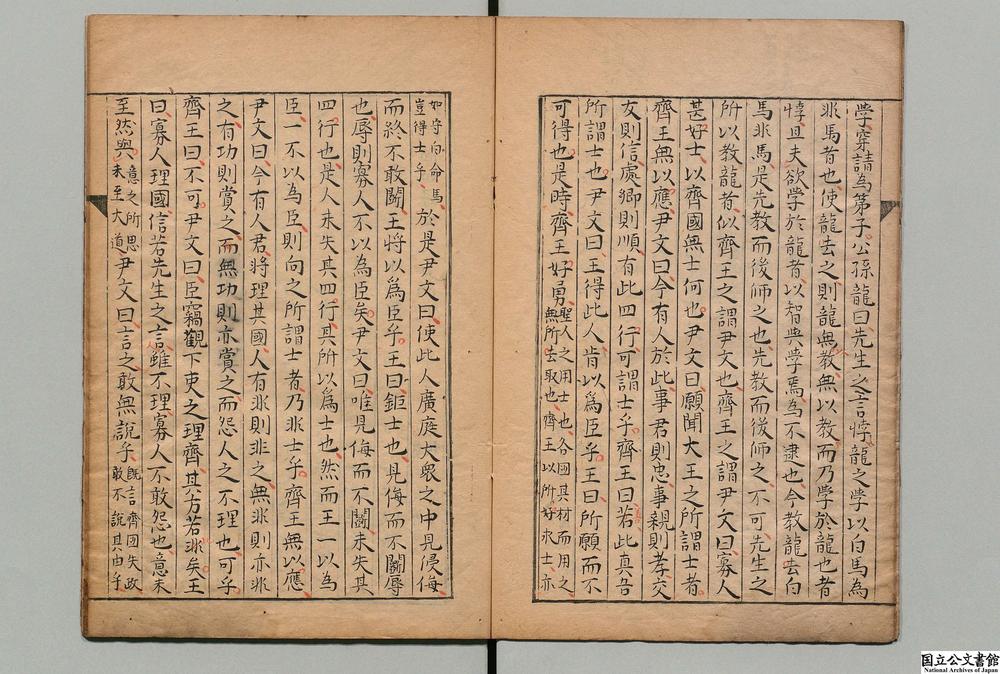 学穿請為弟子公孫龍曰先生之言悖龍之学以白馬為
非馬者也使龍去之則龍無教無以教而乃学於龍也者
悖且夫欲学於龍者以智與学焉為不逮也今教龍去白
馬非馬是先教而後師之也先教而後師之不可先生之
所以教龍者似齊王之謂尹文也齊王之謂尹文曰寡人
甚好士以齊國無士何也尹文曰願聞大王之所謂士者
齊王無以應尹文曰今有人於此事君則忠事親則孝交
友則信處郷則順有此四行可謂士乎齊王曰善此真吾
所謂士也尹文曰王得此人肯以為臣乎王曰所願而不
可得也是時齊王好勇聖人之用士也各因其材而用之
無所去取也齊王以所好求士亦
如守白命馬
豈得士乎於是尹文曰使此人廣庭大衆之中見侵侮
而終不敢鬬王將以為臣乎王曰鉅士也見侮而不鬬辱
也辱則寡人不以為臣矣尹文曰唯見侮而不鬬未失其
四行也是人未失其四行其所以為士也然而王一以為
臣一不以為臣則向之所謂士者乃非士乎齊王無以應
尹文曰今有人君將理其國人有非則非之無非則亦非
之有功則賞之而無功則亦賞之而怨人之不理也可乎
齊王曰不可尹文曰臣竊觀下吏之理齊其方若此矣王
曰寡人理國信若先生之言雖不理寡人不敢怨也意未
至然與意之所思
未至大道尹文曰言之敢無說乎既言齊國失政
敢不說其由乎
国立公文書館
National Archives of Japan